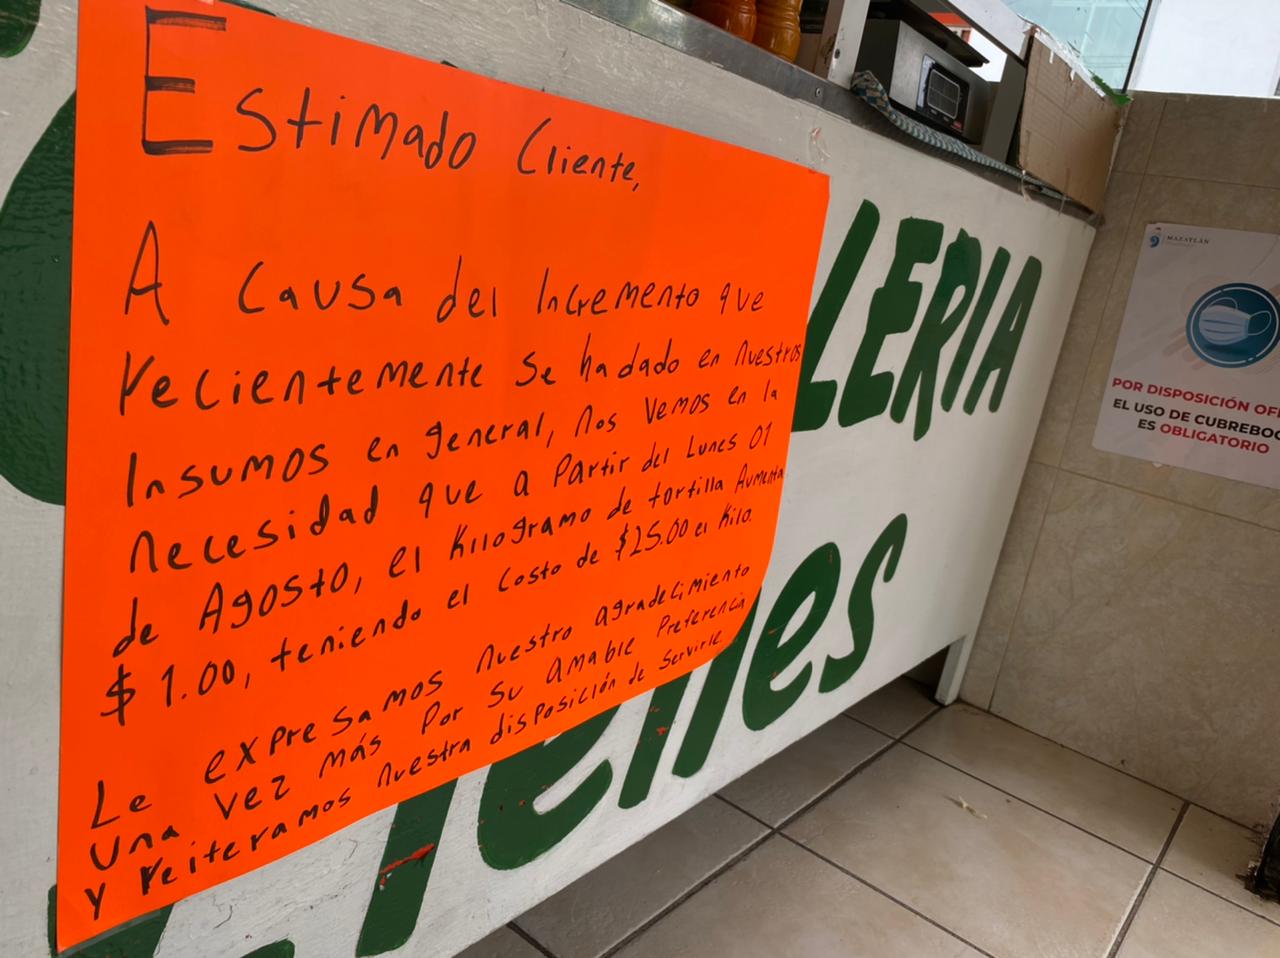 Estimado Cliente,
A causa del Incremento que
recientemente se ha dado en nuestros
Insumos en general, nos vemos en la
necesidad que a Partir del Lunes 01
de Agosto, el Kilogramo de tortilla Aumenta
$ 1.00, teniendo el costo de $25.00 el Kilo.
Le expresamos nuestro agradecimiento
una vez más Por su amable Preferencia
y reiteramos nuestra disposición de servirle.
LERIA
MAZATLÁN
POR DISPOSICIÓN OFI
EL USO DE CUBREBOC
ES OBLIGATORIO